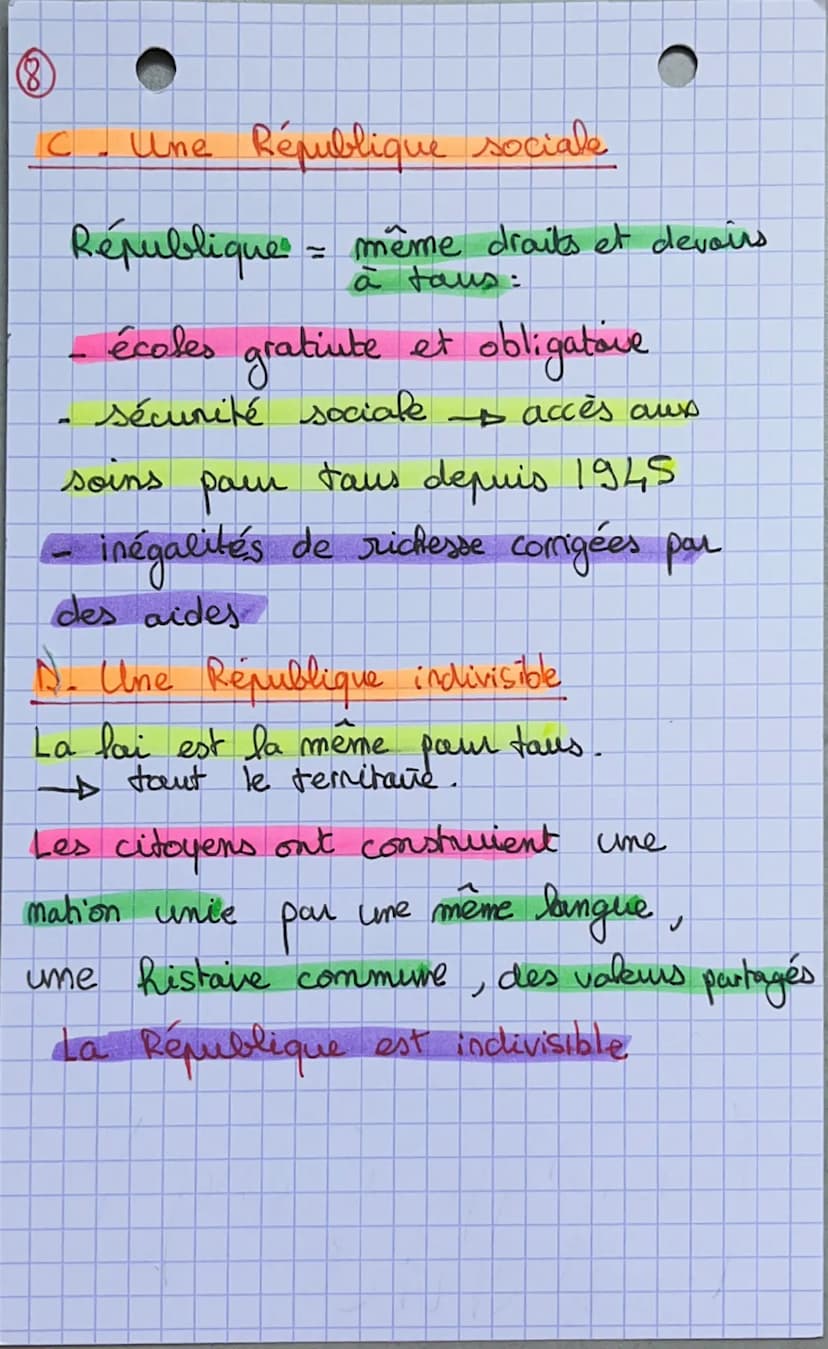 8
C. Une République sociale
République = même droits et devoirs
à tous :
- écoles gratiute et obligatoire
- sécurité sociale → accès aux
soins pour tous depuis 1945
- inégalités de richesse corrigées par
des aides
D. Une République indivisible
La loi est la même pour tous.
→ tout le territoire.
Les citoyens ont construient une
nation unie par une même langue,
une histoire commune, des valeurs partagés
La République est indivisible